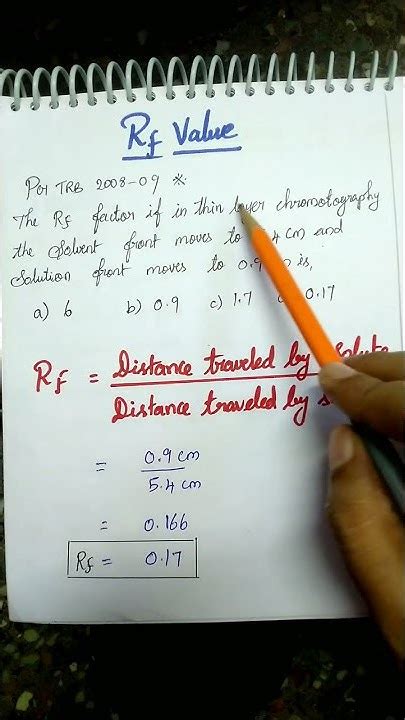 Rf Value
Por TRB 2008-09 ※
The Rf factor if in thin layer chromotography
the Solvent front moves to 4 cm and
Solution front moves to 0.9 is,
a) 6 b) 0.9 c) 1.7 0.17
Rf = Distance traveled by Solute
Distance traveled by
= 0.9 cm
5.4 cm
= 0.166
Rf = 0.17